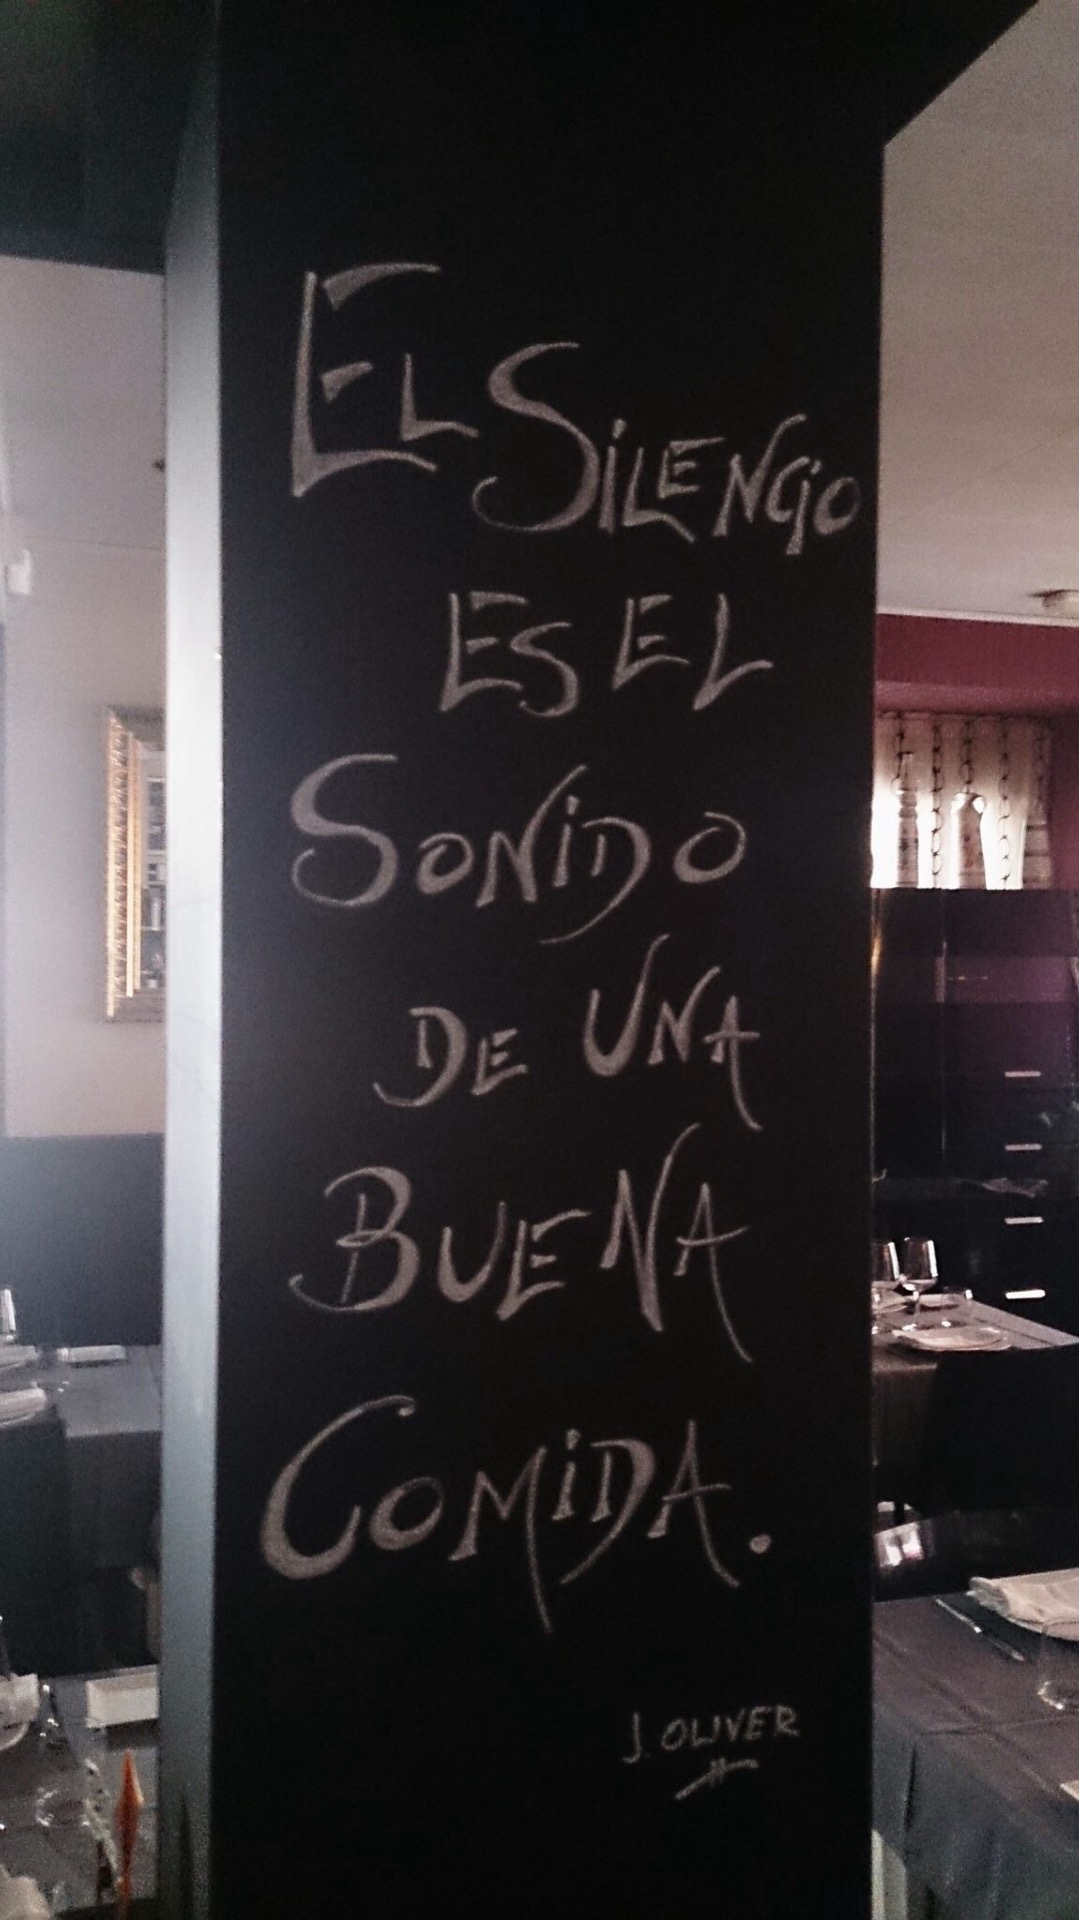 EL SiLENCiO
ES EL
SONiDO
DE UNA
BUENA
COMiDA.
J. OLIVER